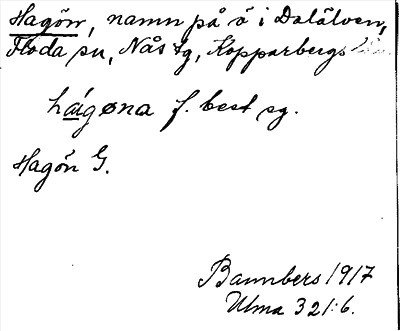 Hagön, namn på ö i Dalälven,
Floda sn, Nås tg, Kopparbergs län
hágøna f. best sg.
Hagön G.
Bannbers 1917
Ulma 321:6.